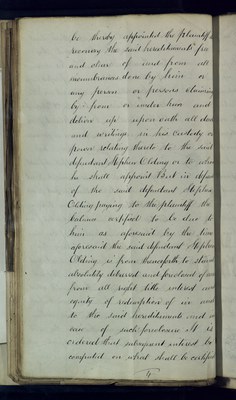 be thereby appointed the plaintiff
reconvey the said hereditaments free
and clear of and from all
incumbrances done by him or
any person or persons claiming
by from or under him and
deliver up upon oath all deeds
and writings in his custody or
power relating thereto to the said
defendant Stephen Olding or to whom
he shall appoint But in default
of the said defendant Stephen
Olding paying to the plaintiff the
balance certified to be due to
him as aforesaid by the time
aforesaid the said defendant Stephen
Olding is from thenceforth to stand
absolutely debarred and foreclosed of and
from all right title interest and
equity of redemption of in and
to the said hereditaments and in
case of such foreclosure It is
ordered that subsequent interest be
computed on what shall be certified